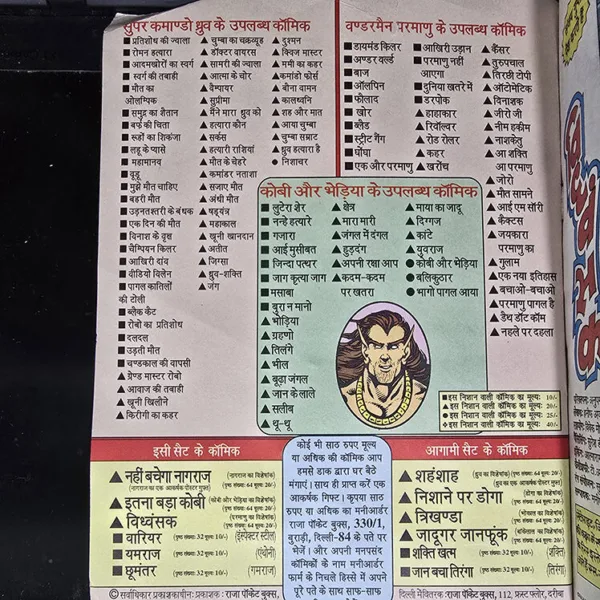 सुपर कमान्डो ध्रुव के उपलब्ध कॉमिक
■ प्रतिशोध की ज्वाला
■ रोमन हत्यारा
■ आदमखोरों का स्वर्ग
■ स्वर्ग की तबाही
■ मौत का
ओलम्पिक
■ समुद्र का शैतान
■ बर्फ की चिता
■ रूहों का शिकंजा
■ लहू के प्यासे
■ महामानव
■ वूडू
■ मुझे मौत चाहिए
■ बहरी मौत
■ उड़नतश्तरी के बंधक
■ एक दिन की मौत
■ विनाश के वृक्ष
■ चैम्पियन किलर
■ आखिरी दांव
■ वीडियो विलेन
■ पागल कातिलों
की टोली
■ ब्लैक कैट
■ रोबो का प्रतिशोध
■ दलदल
■ उड़ती मौत
■ चण्डकाल की वापसी
▲ ग्रेण्ड मास्टर रोबो
▲ आवाज की तबाही
▲ खूनी खिलौने
▲ किरीगी का कहर
▲ चुम्बा का चक्रव्यूह
▲ डॉक्टर वायरस
▲ सामरी की ज्वाला
▲ आत्मा के चोर
▲ वैम्पायर
▲ सुप्रीमा
▲ मैंने मारा ध्रुव को
▲ हत्यारा कौन
▲ सर्कस
▲ हत्यारी राशियां
▲ मौत के चेहरे
▲ कमांडर नताशा
▲ सजाए मौत
▲ अंधी मौत
▲ षड्यंत्र
▲ महाकाल
▲ खूनी खानदान
▲ अतीत
▲ जिग्सा
▲ ध्रुव-शक्ति
▲ जंग
▲ दुश्मन
▲ क्विज मास्टर
▲ ममी का कहर
▲ कमांडो फोर्स
▲ बौना वामन
▲ कालध्वनि
▲ शह और मात
▲ आया चुम्बा
▲ चुम्बा सम्राट
▲ ध्रुव हत्यारा है
● निशाचर
वण्डरमैन परमाणु के उपलब्ध कॉमिक
■ डायमंड किलर
■ अण्डर वर्ल्ड
■ बाज
■ ऑलपिन
■ फौलाद
■ खोर
■ ब्लैड
■ स्ट्रीट गैंग
■ घोंघा
■ एक और परमाणु
■ आखिरी उड़ान
■ परमाणु नहीं
आएगा
■ दुनिया खतरे में
■ डरपोक
▲ हाहाकार
▲ रिवॉल्वर
▲ रोड रोलर
▲ कहर
▲ खरोंच
▲ कैंसर
▲ तुरुपचाल
▲ तिरछी टोपी
▲ ऑटोमेटिक
▲ विनाशक
▲ जीरो जी
▲ नीम हकीम
▲ नाशकेतु
▲ आ शक्ति
आ परमाणु
▲ जोरो
▲ मौत सामने
▲ आई एम सॉरी
▲ कैक्टस
▲ जयकारा
परमाणु का
▲ गुलाम
▲ एक नया इतिहास
▲ बचाओ-बचाओ
▲ परमाणु पागल है
▲ डैथ डॉट कॉम
▲ नहले पर दहला
कोबी और भेड़िया के उपलब्ध कॉमिक
■ लुटेरा शेर
■ नन्हे हत्यारे
■ गजारा
■ आई मुसीबत
■ जिन्दा पत्थर
■ जाग कृत्या जाग
■ मसाबा
■ बुरा न मानो
▲ भेड़िया
▲ ग्रहणो
▲ तिलंगे
▲ भील
▲ बूढ़ा जंगल
▲ जान के लाले
▲ सलीब
▲ थू-थू
▲ क्षेत्र
▲ मारा मारी
▲ जंगल में दंगल
▲ हुड़दंग
▲ अपनी रक्षा आप
▲ कदम-कदम
पर खतरा
▲ माया का जादू
▲ दिग्गज
▲ कांटे
▲ युवराज
● कोबी और भेड़िया
● बलिकुठार
● भागो पागल आया
■ इस निशान वाली कॉमिक का मूल्य: 10/-
▲ इस निशान वाली कॉमिक का मूल्य: 20/-
● इस निशान वाली कॉमिक का मूल्य: 25/-
◆ इस निशान वाली कॉमिक का मूल्य: 40/-
इसी सैट के कॉमिक
▲ नहीं बचेगा नागराज (नागराज का विशेषांक)
(नागराज का एक आकर्षक पोस्टर मुफ्त) (पृष्ठ संख्या: 64 मूल्य: 20/-)
▲ इतना बड़ा कोबी (कोबी और भेड़िया का विशेषांक)
(पृष्ठ संख्या: 64 मूल्य: 20/-)
▲ विध्वंसक (पृष्ठ संख्या: 64 मूल्य: 20/-)
■ वारियर (पृष्ठ संख्या: 32 मूल्य: 10/-) (इंस्पेक्टर स्टील)
■ यमराज (पृष्ठ संख्या: 32 मूल्य: 10/-) (एंथोनी)
■ छूमंतर (पृष्ठ संख्या: 32 मूल्य: 10/-) (गमराज)
कोई भी साठ रुपए मूल्य
या अधिक की कॉमिक आप
हमसे डाक द्वारा घर बैठे
मंगाएं। साथ ही प्राप्त करें एक
आकर्षक गिफ्ट। कृपया साठ
रुपए या अधिक का मनीआर्डर
राजा पॉकेट बुक्स, 330/1,
बुराड़ी, दिल्ली-84 के पते पर
भेजें। और अपनी मनपसंद
कॉमिकों के नाम मनीआर्डर
फार्म के निचले हिस्से में अपने
पूरे पते के साथ साफ-साफ
आगामी सैट के कॉमिक
▲ शहंशाह (ध्रुव का विशेषांक)
(ध्रुव का एक आकर्षक पोस्टर मुफ्त) (पृष्ठ संख्या: 64 मूल्य: 20/-)
▲ निशाने पर डोगा (डोगा का विशेषांक)
(पृष्ठ संख्या: 64 मूल्य: 20/-)
▲ त्रिखण्डा (भोकाल का विशेषांक)
(पृष्ठ संख्या: 64 मूल्य: 20/-)
▲ जादूगर जानफूंक (बांकेलाल का विशेषांक)
(पृष्ठ संख्या: 64 मूल्य: 20/-)
■ शक्ति खत्म (पृष्ठ संख्या: 32 मूल्य: 10/-) (शक्ति)
■ जान बचा तिरंगा (पृष्ठ संख्या: 32 मूल्य: 10/-) (तिरंगा)
© सर्वाधिकार प्रकाशकाधीन: प्रकाशक : राजा पॉकेट बुक्स,
दिल्ली में वितरक :राजा पॉकेट बुक्स, 112, फ़र्स्ट फ्लोर, दरीबा